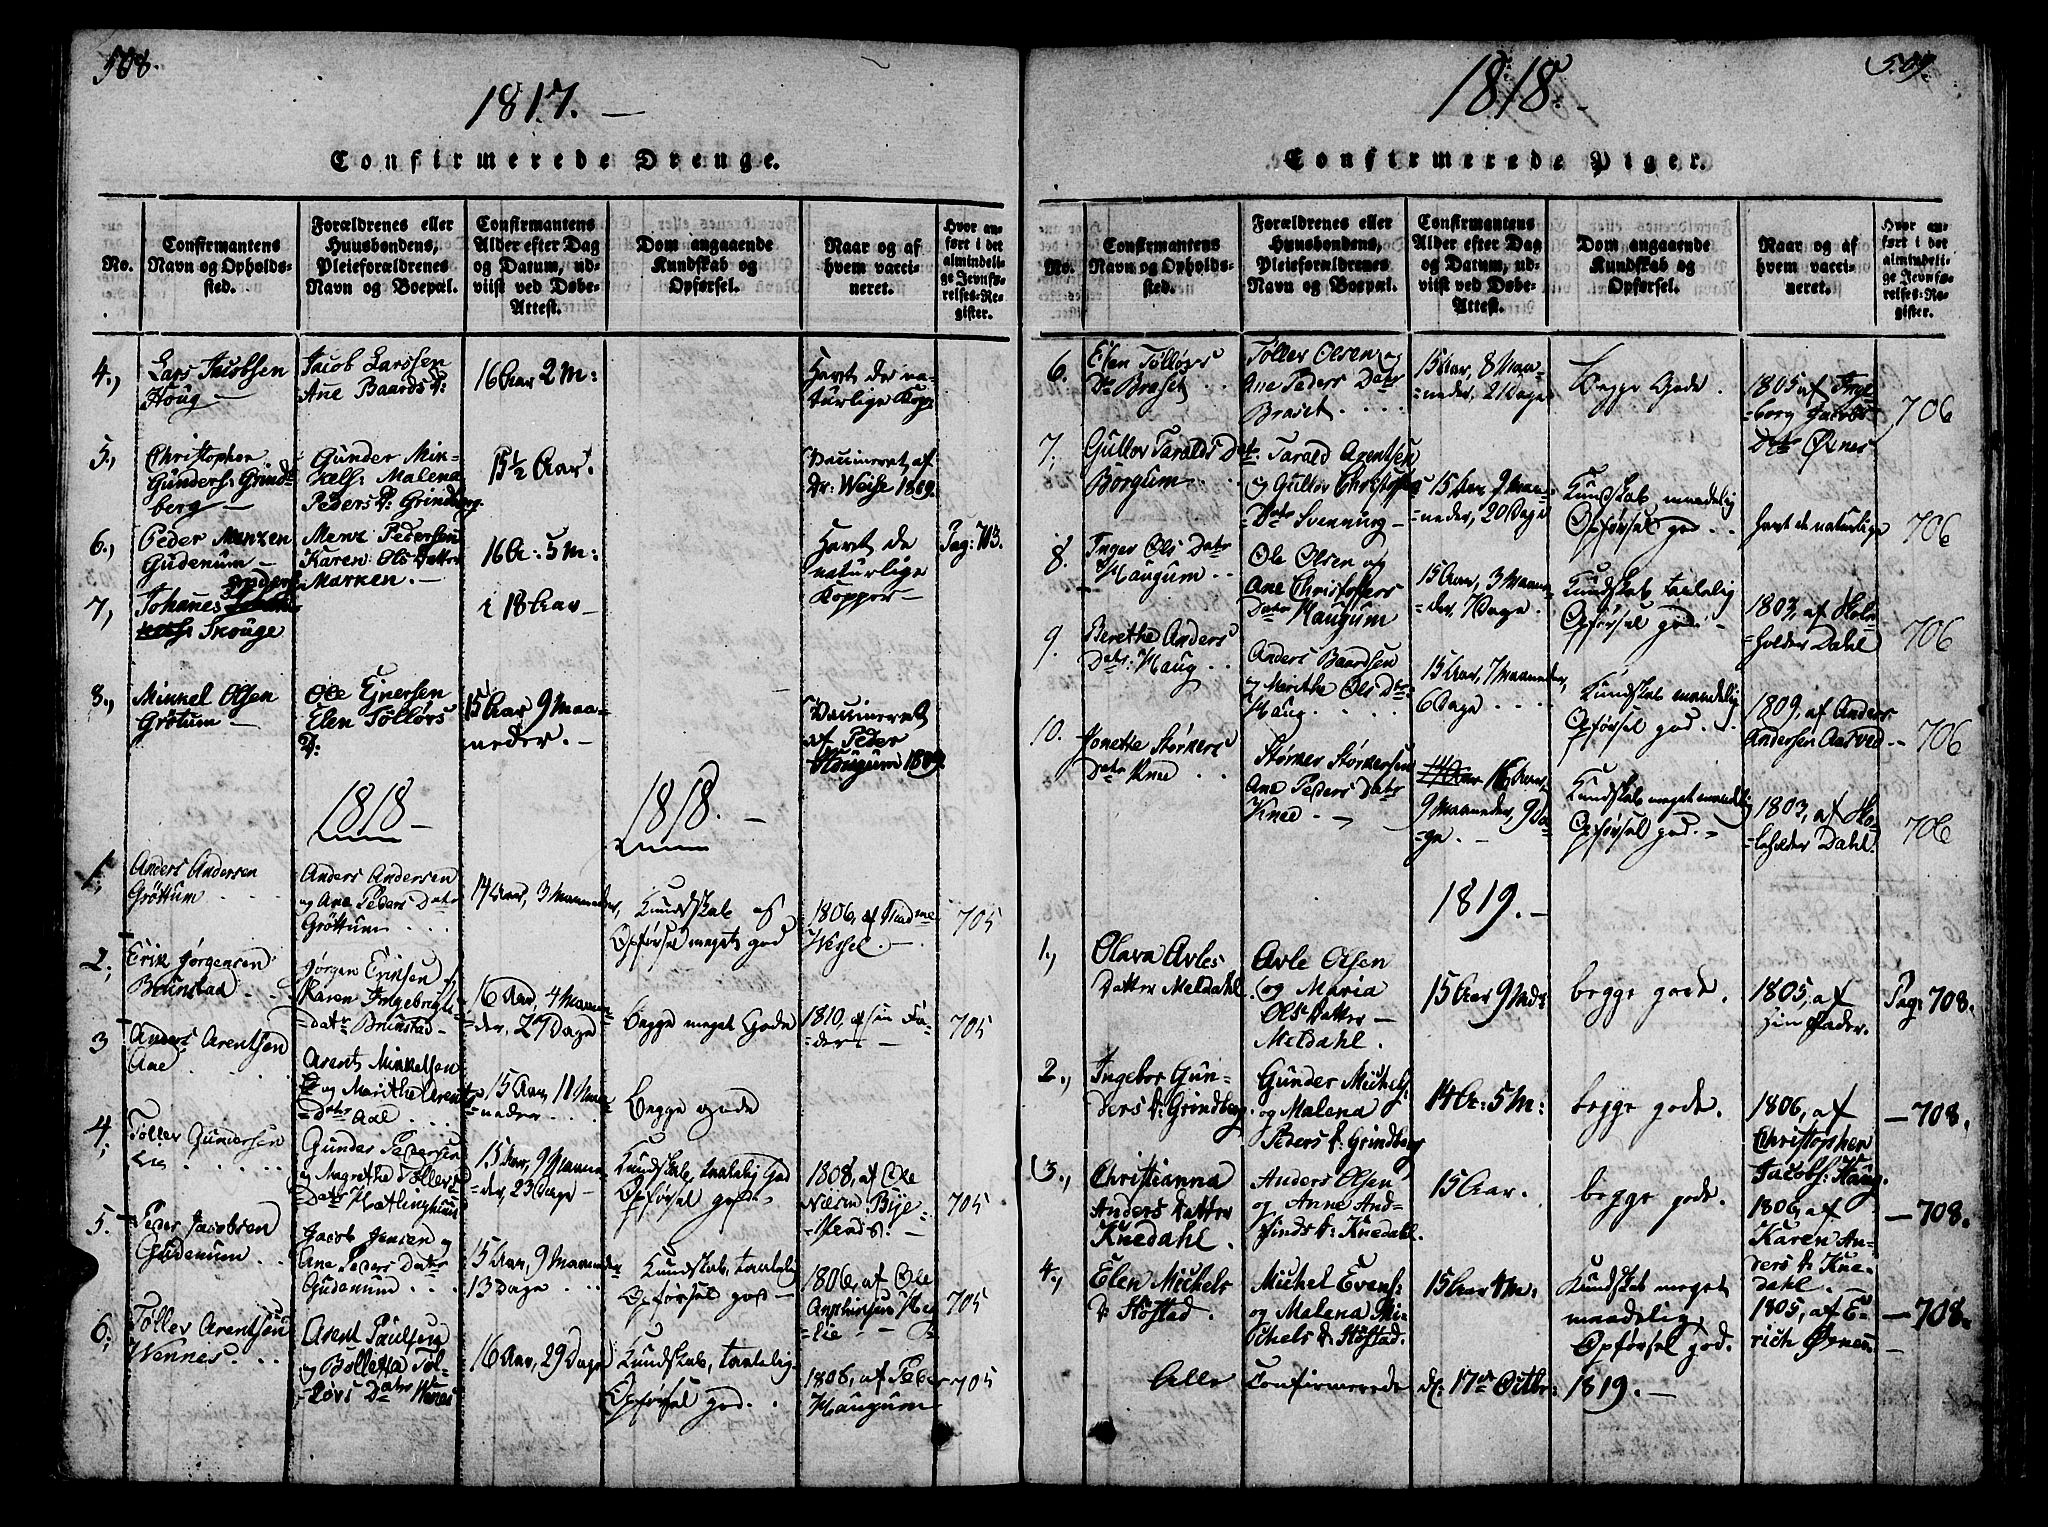 508.
1817. —
Confirmerede Drenge.
No.
Confirmantens
Navn og Opholds-
sted.
Forældrenes eller
Huusbondens,
Pleieforældrenes
Navn og Boepæl.
Confirmantens
Alder efter Dag
og Datum, ud-
viist ved Døbe-
Attest.
Dom angaaende
Kundskab og
Opførsel.
Naar og af
hvem vacci-
neret.
Hvor an-
ført i det
almindeli-
ge Jevnfø-
relses-Re-
gister.
4.,
Lars Jacobsen
Houg —
Jacob Larssen
Ane Baards D:
16 Aar 2 M:
Havt de na-
turlige Kopp
5.,
Christopher
Gunders: Grind-
berg —
Gunder Min-
kels: Malena
Peders D: Grindberg
15½ Aar.
Vaccineret af
Dr: Weise 1809.
6.,
Peder Menzen
Gudenum —
Menz Pedersen
Karen Ols Datter
Marken. —
16 A: 5 M:
Havt de
naturlige
Kopper —
Pag: 703.
7,
Johanes
Skouge
i 18 Aar —
8.,
Minkel Olsen
Grøtum —
Ole Ejnersen
Elen Tølløvs
D:
15 Aar 9 Maa-
neder. —
Vaccineret
af Peder
Hougum 1809.
1818 —
1818. —
1.,
Anders Andersen
Grøttum . . .
Anders Andersen
og Ane Peders Datr
Grøttum . . .
14 Aar, 3 Maaneder,
Kundskab og
Opførsel meget god
1806, af Madme
Wessel. —
705
2.,
Erik Jørgensen
Brunstad . .
Jørgen Eriksen,
Karen Ingebrigts
=datr Brunstad.
16 Aar, 4 Maane-
=der, 27 Dage
Begge meget Gode
1810, af sin Fa-
=der. —
705
3
Anders Arentsen
Aae . . . .
Arent Minkelsen
og Marithe Arents
=Datr Aae . . .
15 Aar, 11 Maa-
=neder . . .
Begge gode
4.,
Tøller Gundersen
Lie . . . .
Gunder Pedersen
og Magrethe Tøllers
Datr Hatlinghuus
15 Aar, 9 Maane-
=der, 23 Dage —
Kundskab, taalelig God
Opførsel god.
1808, af Ole
705
5.
Peder Jacobsen
Gudenum . .
Jacob Jensen og
Ane Peders Datr
Gudenum . . .
15 Aar, 9 Maaneder
13 Dage . .
Kundskab, taalelig
Opførsel god —
1806, af Ole
705
6.,
Tøller Arentsen
Wennes. . .
Arent Paulsen
og Bolletta Tøl-
=løvs Datr Wenes
16 Aar, 29 Dage
Kundskab, taalelig
Opførsel god. .
1808, af Peder
Haugum
705
509.
1818. —
Confirmerede Piger.
No.
Confirmantens
Navn og Opholds-
sted.
Forældrenes eller
Huusbondens,
Pleieforældrenes
Navn og Boepæl.
Confirmantens
Alder efter Dag
og Datum, ud-
viist ved Døbe-
Attest.
Dom angaaende
Kundskab og
Opførsel.
Naar og af
hvem vacci-
neret.
Hvor an-
ført i det
almindeli-
ge Jevnfø-
relses-Re-
gister.
6.
Elen Tølløvs
Dr Braset . .
Tøller Olsen og
Ane Peders Datr
Braset . . . .
15 Aar, 8 Maa-
=neder, 21 Dage
Begge Gode .
1805 af Inge-
=borg Jacobs
Datr Øsnes
706
7.
Gullov Taralds Datr:
Borgum . .
Tarald Arentsen
og Gullov Christoph
=Datr Svenning —
15 Aar, 9 Maa-
=neder, 20 Dage
Kundskab maadelig
Opførsel god . .
havt de naturlige
706
8.
Inger Ols Datr
Haugum . .
Ole Olsen og
Ane Christoffers
Datr Haugum
15 Aar, 3 Maane-
=der, 7 Dage .
Kundskab taalelig
Opførsel god. .
1803, af Skole-
=holder Dahl
706
9.
Berethe Anders
Datr: Haug . .
Anders Baardsen
og Merithe Ols Datr
Haug . . . .
15 Aar, 7 Maaneder,
6 Dage . . . .
Kundskab maadelig
Opførsel god . .
1809, af Anders
Andersen Aasved
— 706
10.
Jonette Størkers
Datr Knee . .
Størker Størkersen
Ane Peders Datr
Knee . —
14 Aar 16 Aar,
9 Maaneder, 9 Da-
=ge. —
Kundskab meget maadelig
Opførsel god. .
1803, af Sko-
=leholder Dahl.
706
1819. —
1.,
Olava Avles
Datter Meldahl.
Avle Olsen
og Maria
Ols Datter —
Meldahl.
15 Aar 9 Mdr
begge gode.
1805, af
sin Fader.
Pag: 708.
2.,
Ingebor Gun-
ders D: Grindberg.
Gunder Michels:
og Malena
Peders D: Grindberg
14 A: 5 M:
begge gode.
1806, af
Christopher
Jacobs: Haug.
— 708.
3.,
Christianna
Anders Datter
Knedahl.
Anders Olsen
og Anne And-
finds D: Knedahl.
15 Aar.
begge gode.
1806, af
Karen An-
ders D: Kne-
dahl. —
— 708.
4.,
Elen Michels
D: Høstad.
Michel Evens:
og Malena Mi-
chels D: Høstad.
15 Aar 4 M:
Kundskab meget
maadelig,
Opførsel god.
1805, af E-
rich Øsnes.
— 708.
Alle Confirmerede d: 17de Octbr: 1819. —